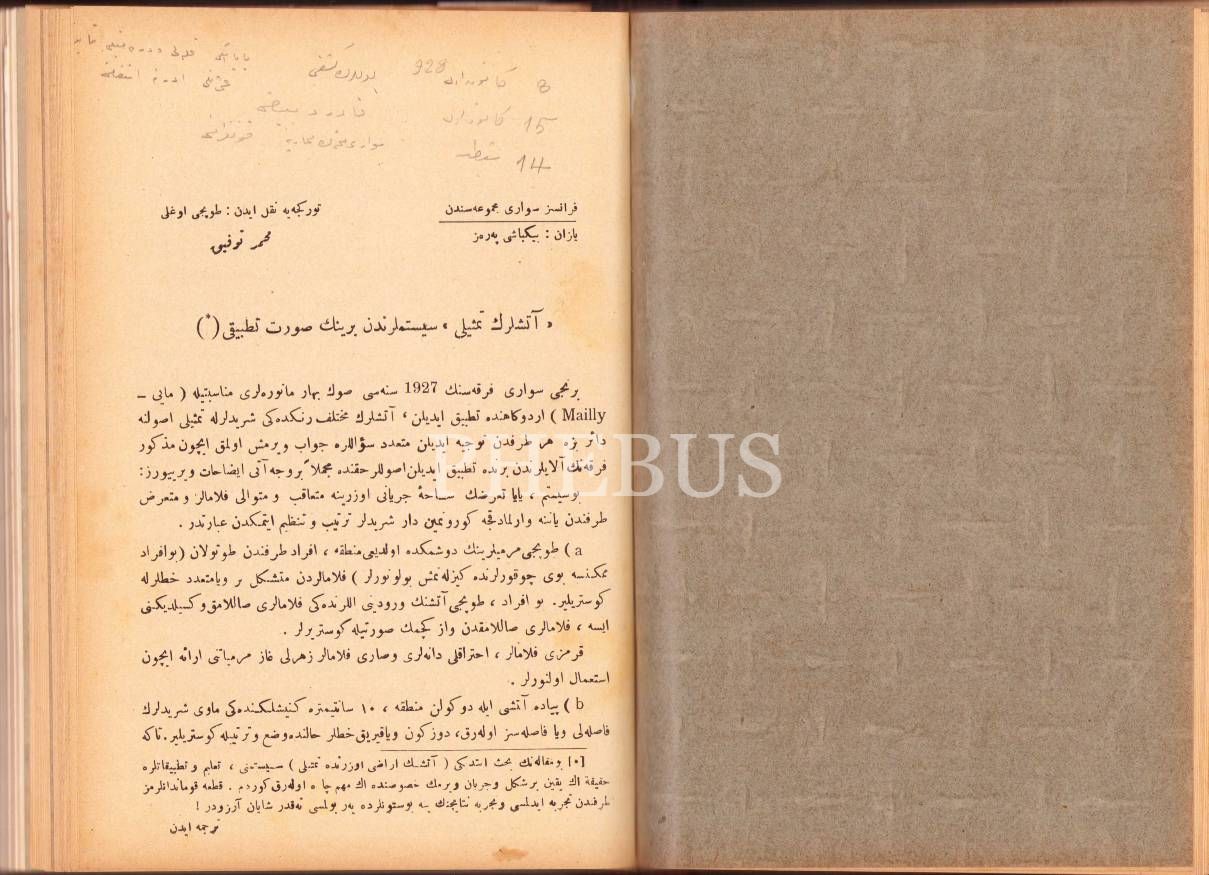 928
15
14
فرانسز سواری مجموعه‌سندن
یازان : بیكباشی په‌ره‌ز
تورکجه‌یه نقل ایدن : طوپجی اوغلی
محمد توفیق
« آتشلرك تمثیلی » سیستملرندن برینك صورت تطبیقی (*)
برنجی سواری فرقه‌سنك 1927 سنه‌سی صوك بهار مانوره‌لری مناسبتیله ( مایی –
Mailly ) اردوکاهنده تطبیق ایدیلن ، آتشلرك مختلف رنكده‌کی شریدلرله تمثیلی اصولنه
دائر بزه هر طرفدن توجیه ایدیلن متعدد سؤاللره جواب ویرمش اولمق ایچون مذکور
فرقه‌نك آلایلرندن برنده تطبیق ایدیلن اصوللر حقنده مجملاً بروجه آتی ایضاحات ویرییورز :
بوسیستم ، پایا تعرضك ساحۀ جریانی اوزرینه متعاقب و متوالی فلامالر و متعرض
طرفندن یاننه وارلمادقجه کورونمین دار شریدلر ترتیب و تنظیم ایتمکدن عبارتدر .
a ) طوپجی مرمیلرینك دوشمکده اولدیغی منطقه ، افراد طرفندن طوتولان (بوافراد
ممکنسه بوی چوقورلرنده کیزله‌نمش بولونورلر ) فلامالردن متشکل بر ویامتعدد خطلرله
کوستریلیر. بو افراد ، طوپجی آتشنك ورودینی اللرنده‌کی فلامالری صاللامق وکسیلدیکنی
ایسه ، فلامالری صاللامقدن واز کچمك صورتیله کوستریرلر .
قرمزی فلامالر ، احتراقلی دانه‌لری وصاری فلامالر زهرلی غاز مرمیاتنی ارائه ایچون
استعمال اولنورلر .
b ) پیاده آتشی ایله دوکولن منطقه ، ۱۰ سانتیمتره کنیشلکنده‌کی ماوی شریدلرك
فاصله‌لی ویا فاصله‌سز اوله‌رق، دوزکون ویاقیریق خطلر حالنده‌وضع وترتیبیله کوستریلیر. تاکه
[*] بومقاله‌نك بحث ایتدیکی ( آتشك اراضی اوزرنده تمثیلی ) سیستمنی ، تعلیم و تطبیقاتلره
حقیقته اك یقین برشکل وجریان ویرمك خصوصنده اك مهم چاره اوله‌رق کوردم . قطعه قوماندانلرمز
طرفندن تجربه ایدلمسی وتجربه نتایجنك ینه بوستونلرده یر بولمسی نه‌قدر شایان آرزودر !
ترجمه ایدن
PHEBUS